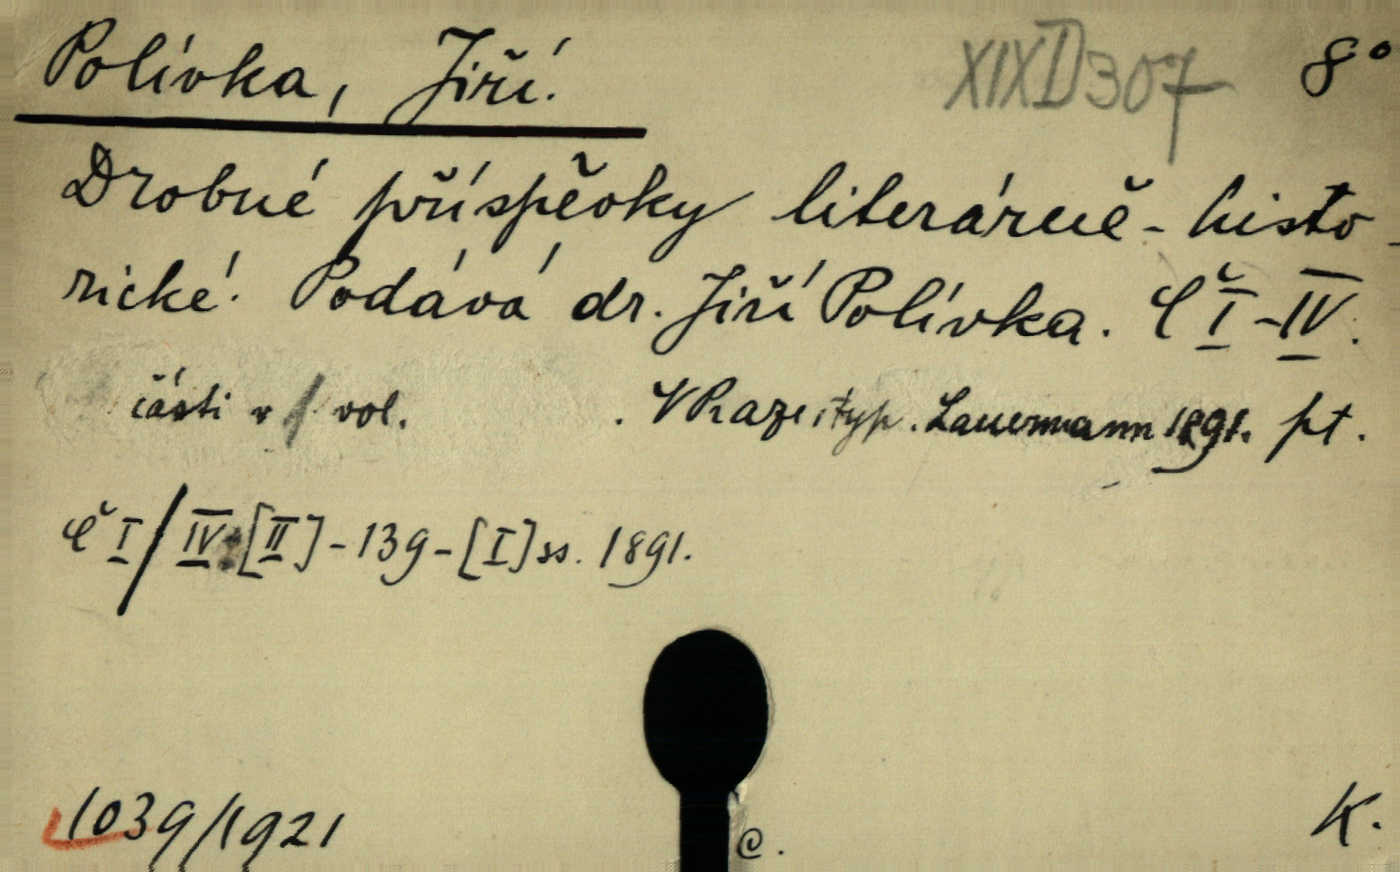 Polívka, Jiří.
XIXD307
8°
Drobné příspěvky literárně-histo-
rické. Podává dr. Jiří Polívka. Č I-IV.
části v 1 vol. . V Praze, typ. Lauermann 1891. pt.
Č I/IV-[II]-139-[I] ss. 1891.
1039/1921
e.
K.